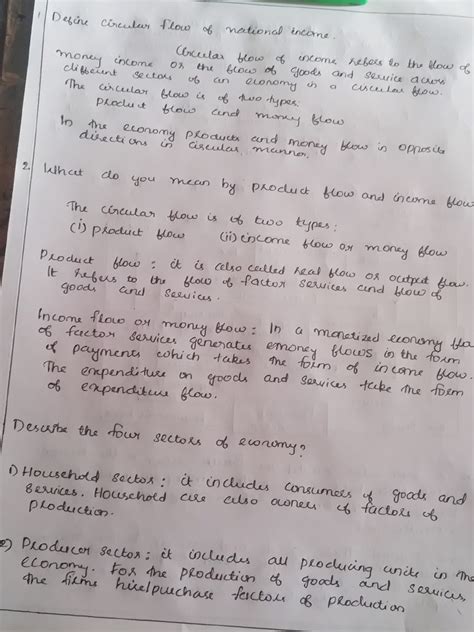 1. Define circular flow of national income.
Circular flow of income refers to the flow of
money income or the flow of goods and service across
different sectors of an economy in a circular flow.
The circular flow is of two types:
product flow and money flow
In the economy products and money flow in opposite
directions in circular manner.
2. What do you mean by product flow and income flow
The circular flow is of two types:
(i) product flow (ii) income flow or money flow
Product flow: it is also called real flow or output flow.
It refers to the flow of factor services and flow of
goods and services.
Income flow or money flow: In a monetized economy flo
of factor services generates money flows in the form
of payments which takes the form of income flow.
The expenditure on goods and services take the form
of expenditure flow.
Describe the four sectors of economy?
1) Household sector: it includes consumers of goods and
services. Household are also owners of factors of
production.
2) Producer sector: it includes all producing units in the
economy. For the production of goods and services,
the firms hire/purchase factors of production